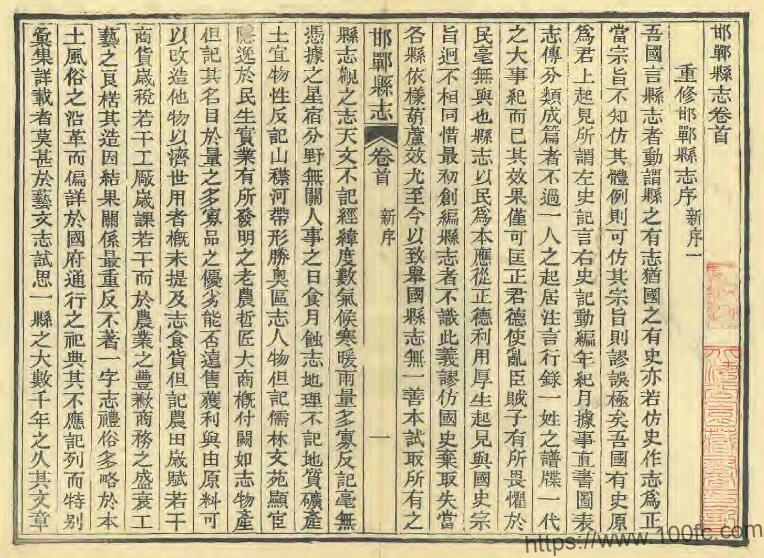 邯鄲縣志卷首
重修邯鄲縣志序 新序一
吾國言縣志者動謂縣之有志猶國之有史亦若仿史作志爲正
當宗旨不知仿其體例則可仿其宗旨則謬誤極矣吾國有史原
爲君上起見所謂左史記言右史記動編年紀月據事直書圖表
志傳分類成篇者不過一人之起居注言行錄一姓之譜牒一代
之大事紀而已其效果僅可匡正君德使亂臣賊子有所畏懼於
民毫無與也縣志以民爲本應從正德利用厚生起見與國史宗
旨迥不相同惜最初創編縣志者不識此義謬仿國史棄取失當
各縣依樣葫蘆效尤至今以致舉國縣志無一善本試取所有之
邯鄲縣志 卷首 新序 一
縣志觀之志天文不記經緯度數氣候寒暖雨量多寡反記毫無
憑據之星宿分野無關人事之日食月蝕志地理不記地質礦產
土宜物性反記山襟河帶形勝奧區志人物但記儒林文苑顯宦
隱逸於民生實業有所發明之老農哲匠大商概付闕如志物產
但記其名目於量之多寡品之優劣能否遠售獲利與由原料可
以改造他物以濟世用者概未提及志食貨但記農田歲賦若干
商貨歲稅若干工廠歲課若干而於農業之豐歉商務之盛衰工
藝之良楛其造因結果關係最重反不著一字志禮俗多略於本
土風俗之沿革而偏詳於國府通行之祀典其不應記列而特別
彙集詳載者莫甚於藝文志試思一縣之大數千年之久其文章
https://www.100fc.com